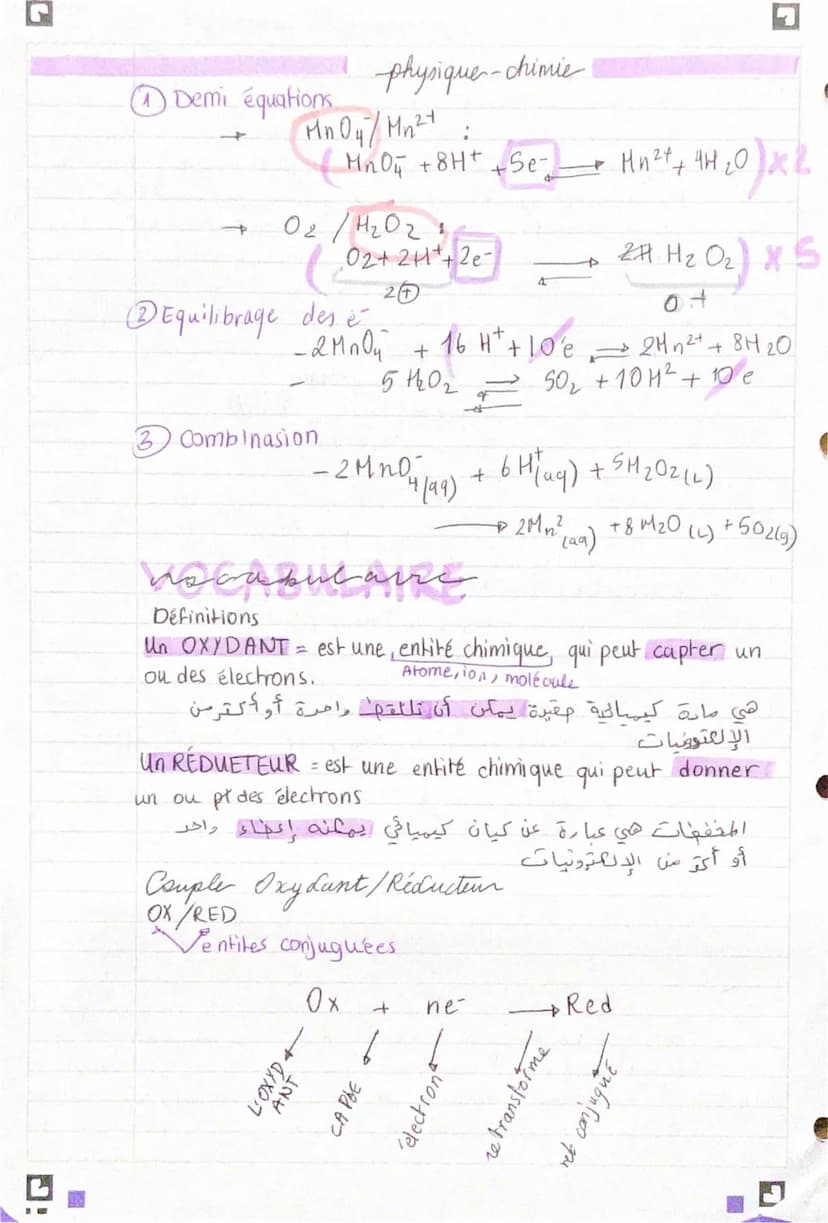 physique-chimie
① Demi équations
→ MnO₄⁻/Mn²⁺ :
( MnO₄⁻ + 8H⁺ + 5e⁻ ⇌ Mn²⁺ + 4H₂O ) x 2
→ O₂ / H₂O₂ :
( O₂ + 2H⁺ + 2e⁻ ⇌ H₂O₂ ) x 5
2⊕ 0 +
② Equilibrage des é
- 2MnO₄⁻ + 16 H⁺ + 10é ⇌ 2Mn²⁺ + 8H₂O
- 5 H₂O₂ ⇌ 5O₂ + 10H² + 10 e
③ Combinasion
- 2MnO₄⁻(aq) + 6 H⁺(aq) + 5H₂O₂(L)
→ 2Mn²(aq) + 8 H₂O (L) + 5O₂(g)
VOCABULAIRE
vocabulaire
Définitions
Un OXYDANT = est une entité chimique, qui peut capter un
Atome, ion, molécule
ou des électrons.
هي مادة كيميائية يمكن أن تلتقط واحدة أو أكثر من
الإلكترونيات
Un RÉDUETEUR = est une entité chimique qui peut donner
un ou pl des électrons
المخفضات هي عبارة عن كيان كيميائي يمكنه إعطاء واحد
أو أكثر من الإلكترونيات
Couple Oxydant/Réducteur
OX/RED
entites conjuguées
Ox + ne⁻ → Red
L'OXYDANT
CAPTE
électron
se transforme
red conjugué